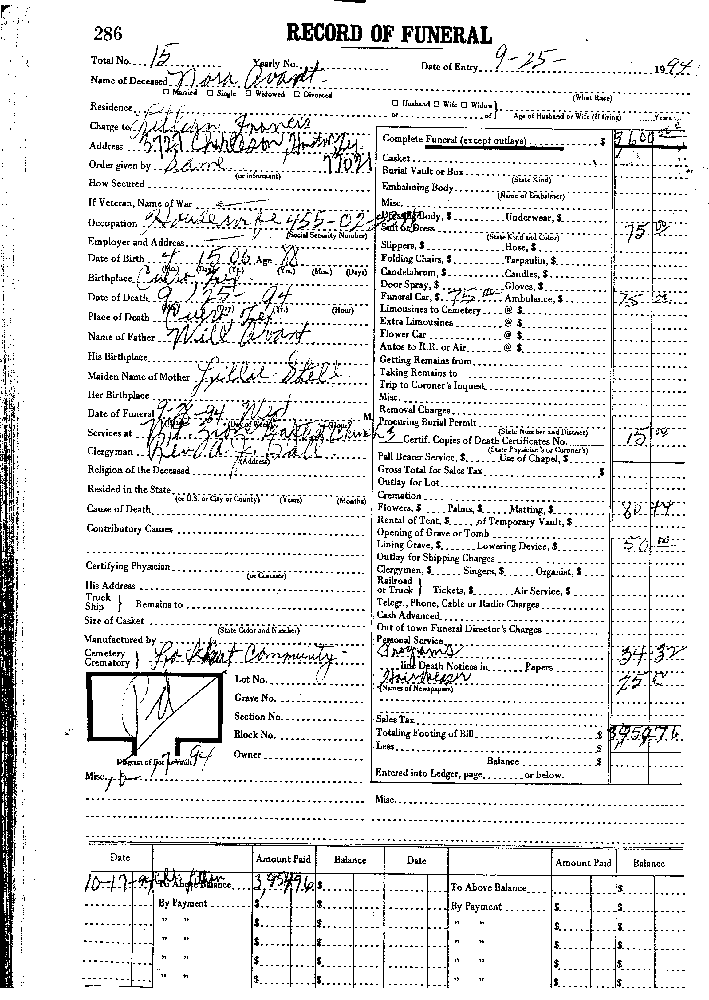 286 RECORD OF FUNERAL
Total No. 15 Yearly No. Date of Entry 9-25- 1994
Name of Deceased Nora Avant
☐ Married ☐ Single ☐ Widowed ☐ Divorced (What Race)
Residence ☐ Husband ☐ Wife ☐ Widow
or of Age of Husband or Wife (if living) Years
Charge to Francis
Address 3727 Charleston, 77021
Order given by Same
(or informant)
How Secured
If Veteran, Name of War
Occupation Housewife 455-02
(Social Security Number)
Employer and Address
Date of Birth 4 15 06 Age 88
(Mo.) (Day) (Yr.) (Yrs.) (Mos.) (Days)
Birthplace Cuero, Tex
Date of Death 9 / 25 - 94
(Yr.) (Hour)
Place of Death Cuero Tex
Name of Father Will Avant
His Birthplace
Maiden Name of Mother Lillie Stell
Her Birthplace
Date of Funeral 9-28-94 Wed M.
Services at Baptist Church
Clergyman Rev. A. L. Ball
(Address)
Religion of the Deceased
Resided in the State
(or U.S. or City or County) (Years) (Months)
Cause of Death
Contributory Causes
Certifying Physician
(or Coroner)
His Address
Truck
Ship } Remains to
Size of Casket
(State Color and Number)
Manufactured by
Cemetery
Crematory } Lockhart Community
Lot No.
Grave No.
Section No.
Block No.
Owner
Diagram of Lot or Vault
Pd
94
Misc.
Complete Funeral (except outlays) $ 3,600 00
Casket
Burial Vault or Box
(State Kind)
Embalming Body
(Name of Embalmer)
Misc.
Dressing Body, $ Underwear, $
Suit or Dress 75 00
(State Kind and Color)
Slippers, $ Hose, $
Folding Chairs, $ Tarpaulin, $
Candelabrum, $ Candles, $
Door Spray, $ Gloves, $
Funeral Car, $ 75 00 Ambulance, $ 75 00
Limousines to Cemetery @ $
Extra Limousines @ $
Flower Car @ $
Autos to R.R. or Air @ $
Getting Remains from
Taking Remains to
Trip to Coroner's Inquest
Misc.
Removal Charges
Procuring Burial Permit
(State Number and District)
3 Certif. Copies of Death Certificates No. 15 00
(State Physician's or Coroner's)
Pall Bearer Service, $ Use of Chapel, $
Gross Total for Sales Tax $
Outlay for Lot
Cremation
Flowers, $ Palms, $ Matting, $ 80 44
Rental of Tent, $ of Temporary Vault, $
Opening of Grave or Tomb
Lining Grave, $ Lowering Device, $ 50 00
Outlay for Shipping Charges
Clergymen, $ Singers, $ Organist, $
Railroad
or Truck } Tickets, $ Air Service, $
Telegr., Phone, Cable or Radio Charges
Cash Advanced
Out of town Funeral Director's Charges
Personal Service
Programs 34 32
line Death Notices in Papers
Hairdresser 25 00
(Names of Newspapers)
Sales Tax
Totaling Footing of Bill $ 3,954.76
Less $
Balance $
Entered into Ledger, page or below.
Misc.
Date Amount Paid Balance Date Amount Paid Balance
10-17-94 To Above Balance 3,954.76 $ To Above Balance $
By Payment $ $ By Payment $ $
" " $ $ " " $ $
" " $ $ " " $ $
" " $ $ " " $ $
" " $ $ " " $ $